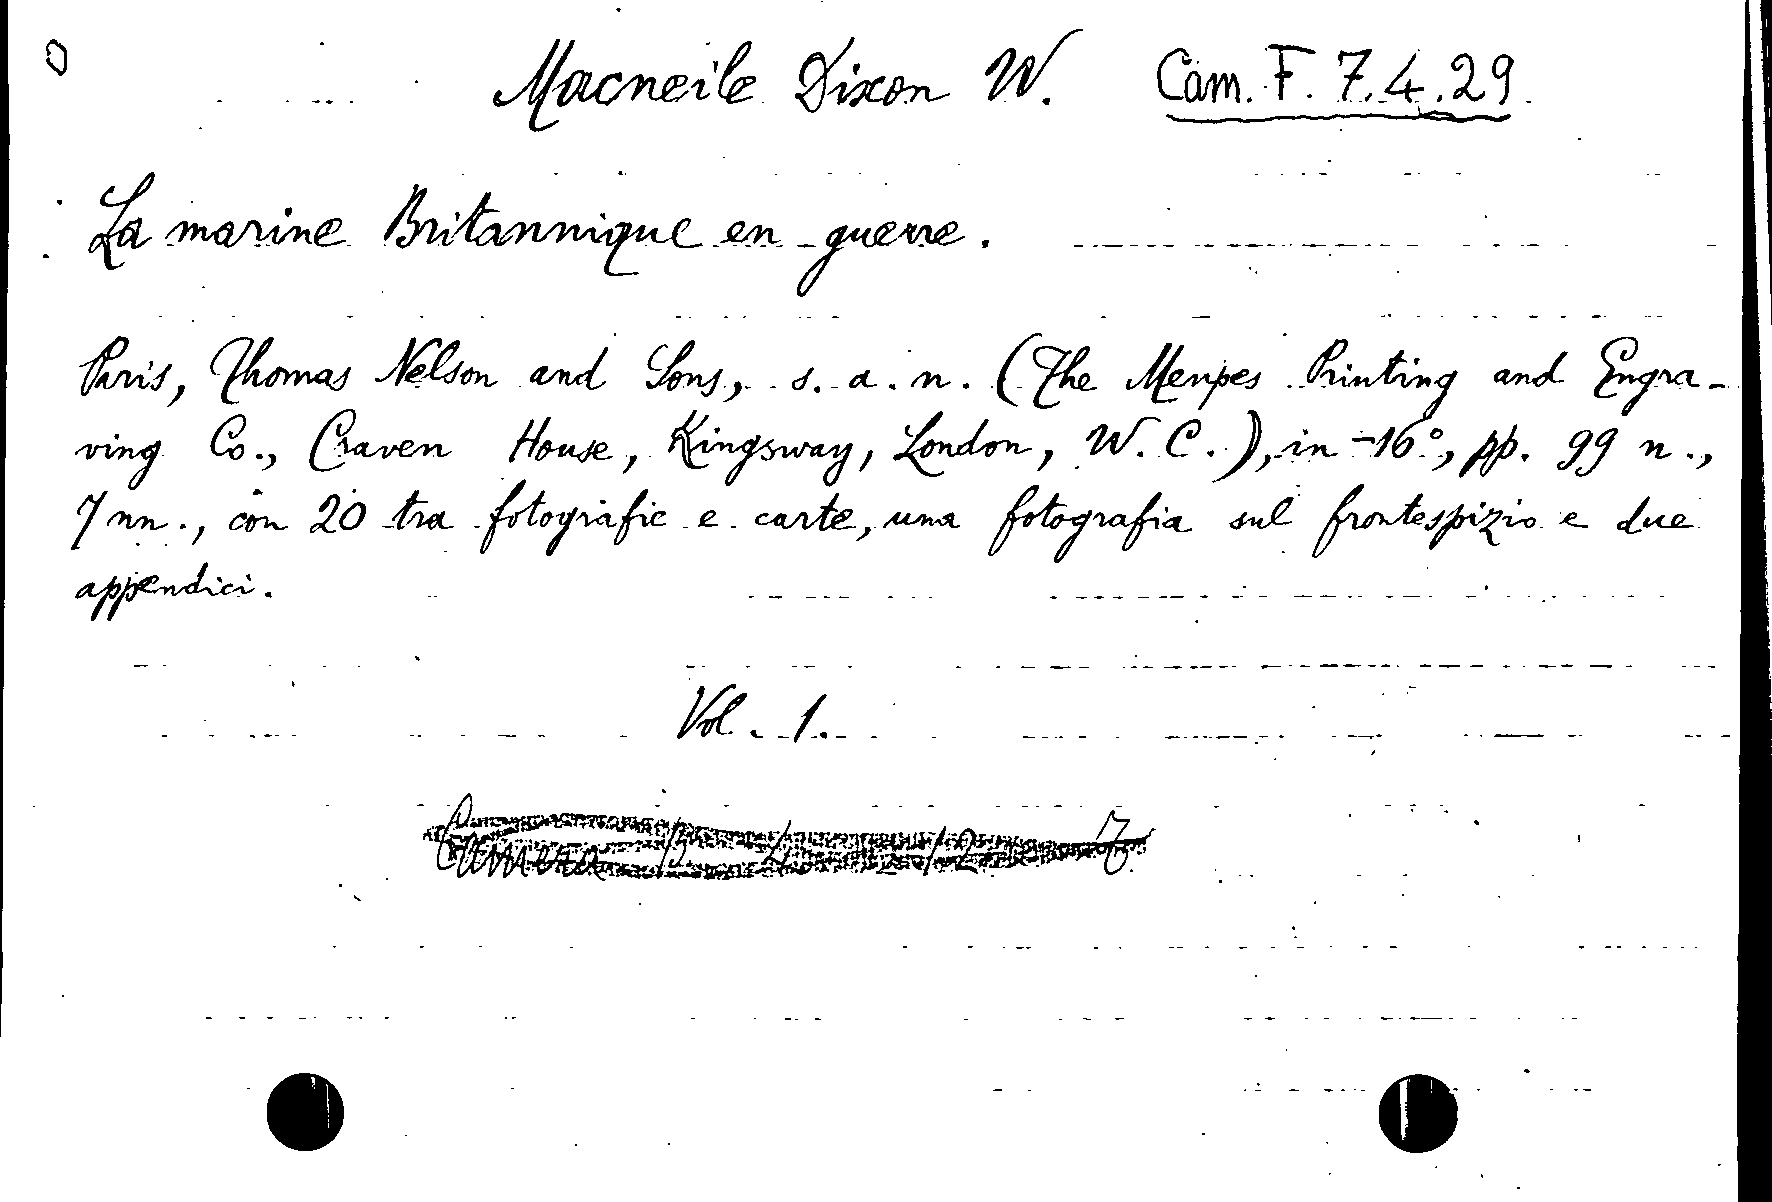 Macneile Dixon W. Cam. F. 7.4.29
La marine Britannique en guerre.
Paris, Thomas Nelson and Sons, s. a. n. (The Menpes Printing and Engra-
ving Co., Craven House, Kingsway, London, W. C.), in-16°, pp. 99 n.,
7 nn., con 20 tra fotografie e carte, una fotografia sul frontespizio e due
appendici.
Vol. 1.